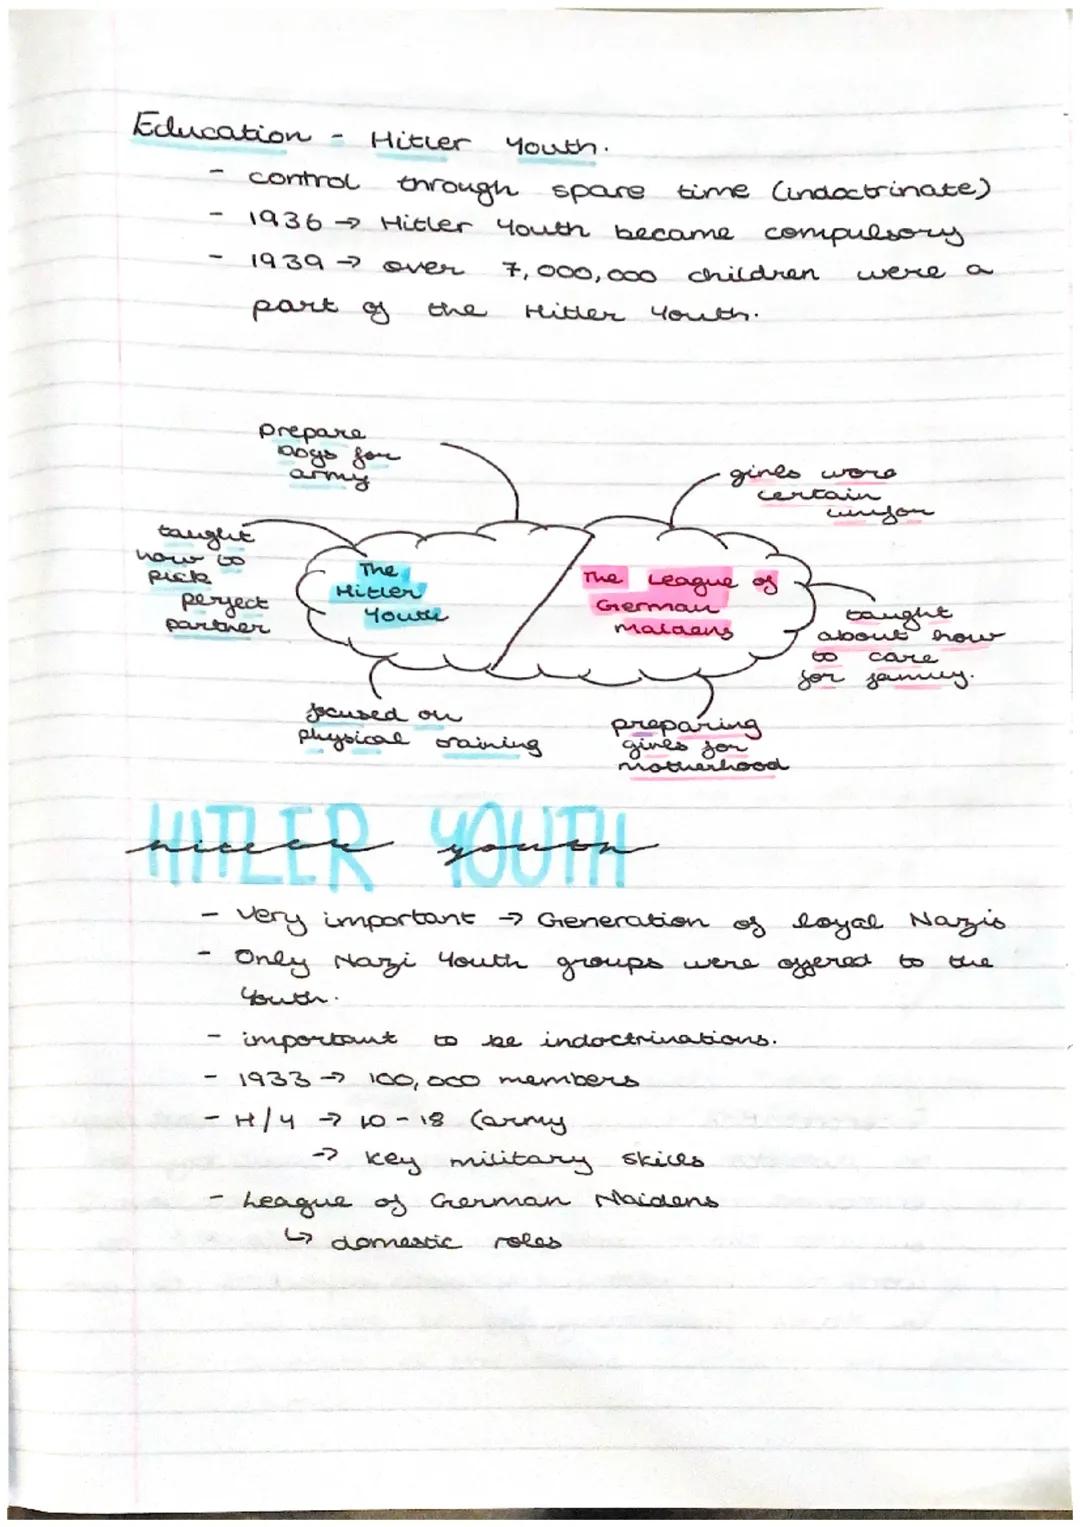 Education - Hitler Youth.
- control through spare time (indoctrinate)
- 1936 → Hitler Youth became compulsory
- 1939 → over 7,000,000 children were a
part of the Hitler Youth.
prepare
boys for
army
taught
how to
pick
perfect
partner
The
Hitler
Youth
focused on
physical training
girls wore
certain
unifor
The League of
German
Maidens
taught
about how
to care
for family.
preparing
girls for
motherhood
HITLER YOUTH
hitler youth
- Very important → Generation of loyal Nazis
- Only Nazi Youth groups were offered to the
Youth.
- important to be indoctrinations.
- 1933 → 100,000 members
- H/Y → 10-18 (army
→ key military skills
- League of German Maidens
↳ domestic roles